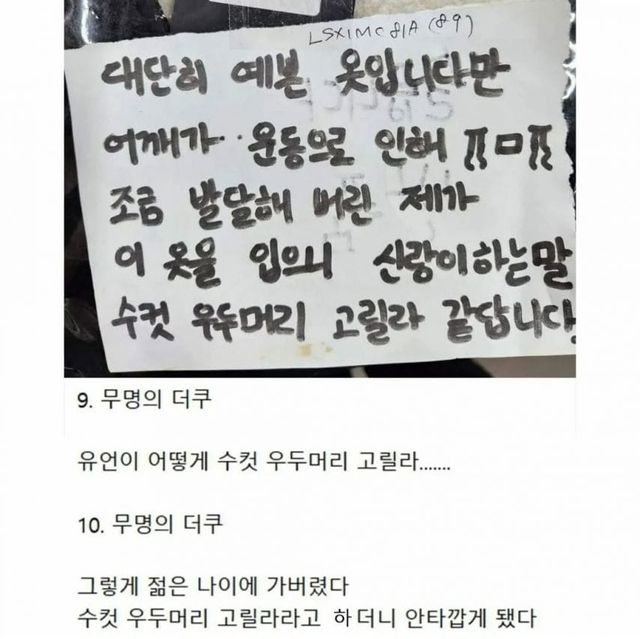 LSX1MC81A (89)
대단히 예쁜 옷입니다만
어깨가.. 운동으로 인해 ㅠㅁㅠ
조금 발달해 버린 제가
이 옷을 입으니 신랑이하는말
수컷 우두머리 고릴라 같답니다.
9. 무명의 더쿠
유언이 어떻게 수컷 우두머리 고릴라.......
10. 무명의 더쿠
그렇게 젊은 나이에 가버렸다
수컷 우두머리 고릴라라고 하더니 안타깝게 됐다